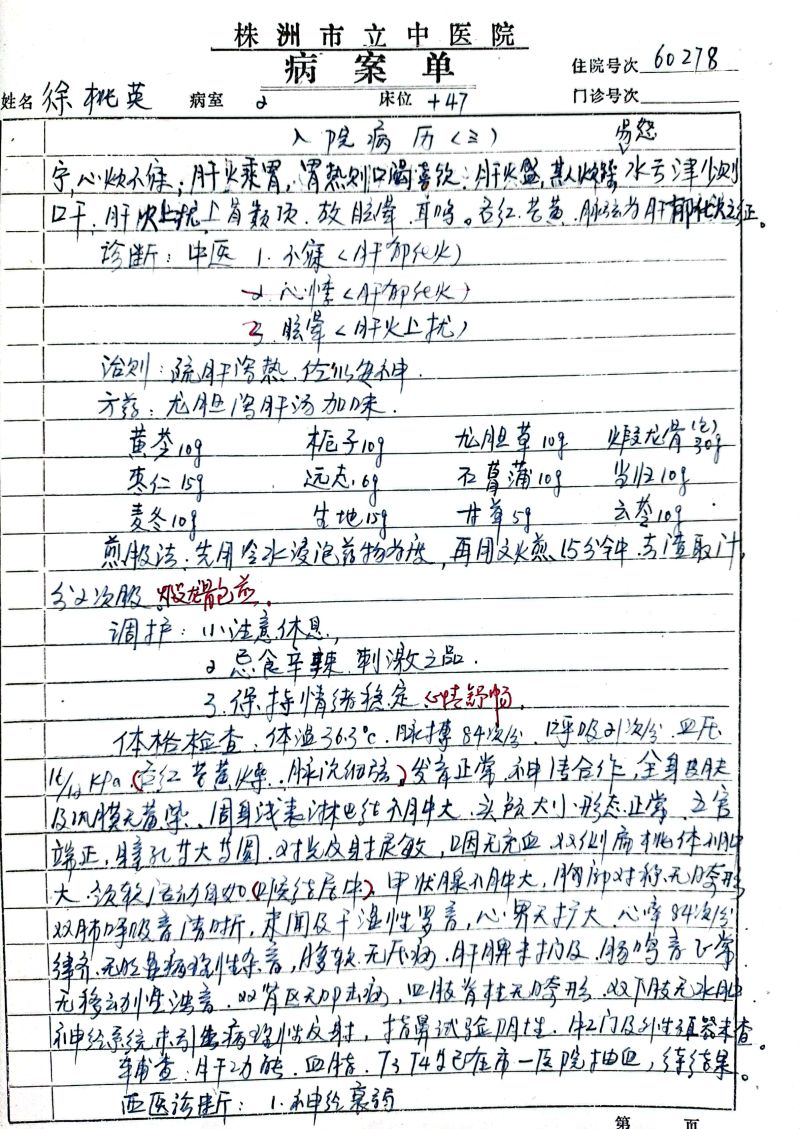 株洲市立中医院
病案单
住院号次 60278
姓名 徐桃英 病室 2 床位 +47 门诊号次
入院病历(三)
易怒
宁,心烦不寐;肝火乘胃,胃热则口渴喜饮;肝火盛,其人烦躁 水亏津少则
口干;肝火上扰上巅数顶,故眩晕、耳鸣。舌红苔黄、脉弦为肝郁化火之征。
诊断:中医 1.不寐(肝郁化火)
2.心悸(肝郁化火)
3.眩晕(肝火上扰)
治则:疏肝泻热、佐以安神.
方药:龙胆泻肝汤加味.
黄芩10g 栀子10g 龙胆草10g 煅龙骨(包)30g
枣仁15g 远志6g 石菖蒲10g 当归10g
麦冬10g 生地15g 甘草5g 云苓10g
煎服法:先用冷水浸泡药物为度,再用文火煎15分钟,去渣取汁,
分2次服.煅龙骨包煎.
调护:1.注意休息,
2.忌食辛辣、刺激之品.
3.保持情绪稳定.心情舒畅
体格检查:体温36.3℃,脉搏84次/分,呼吸21次/分,血压
16/10KPa.(舌红苔黄燥、脉沉细弦)发育正常,神清合作,全身皮肤
及巩膜无黄染、周身浅表淋巴结不肿大.头颅大小形态正常,五官
端正,瞳孔等大等圆、对光反射灵敏,咽无充血,双侧扁桃体不肿
大.颈软活动自如(喉结居中),甲状腺不肿大,胸廓对称、无畸形
双肺呼吸音清晰,未闻及干湿性罗音,心界无扩大,心率84次/分
律齐、无明显病理性杂音,腹软、无压痛,肝脾未扪及,肠鸣音正常
无移动性浊音.双肾区无叩击痛,四肢脊柱无畸形.双下肢无水肿
神经系统未引出病理性反射,指鼻试验阴性.肛门及外生殖器未查。
辅查:肝功能、血脂、T3 T4等已在市一医院抽血,待结果。
西医诊断:1.神经衰弱
第 页